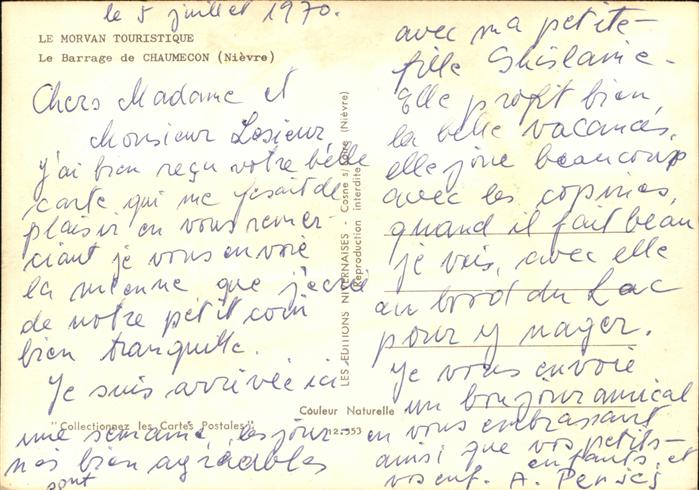 le 5 juillet 1970.
LE MORVAN TOURISTIQUE
Le Barrage de CHAUMECON (Nièvre)
Chers Madame et
Monsieur Lesieur,
j'ai bien reçu votre belle
carte qui me fesait de
plaisir en vous remer-
ciant je vous envoie
la mienne que j'écris
de notre petit coin
bien tranquille.
Je suis arrivée ici
une semaine, les jour-
nés bien agréables
sont
avec ma petite-
fille Ghislaine.
Elle profit bien,
la belle vacances,
elle joue beaucoup
avec les copines,
quand il fait beau
je vais, avec elle
au bord du Lac
pour y nager.
Je vous envoie
un bonjour amical
en vous embrassant
ainsi que vos petits-
enfants et
A.
LES EDITIONS NIVERNAISES - Cosne s/Loire (Nièvre)
Reproduction interdite
Couleur Naturelle
"Collectionnez les Cartes Postales"
12.353